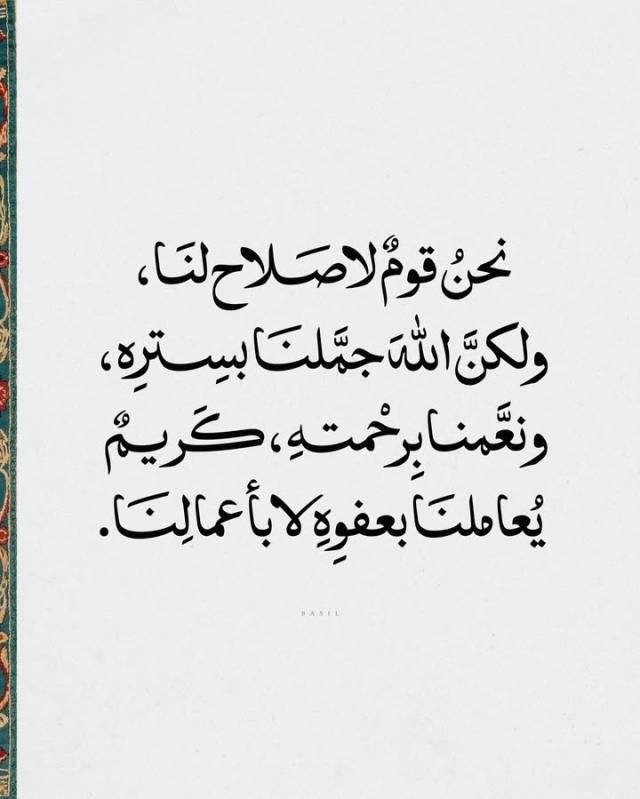 نحنُ قومٌ لا صَلاح لنَا،
ولكنَّ اللهَ جمَّلنَا بسِترِه،
ونعَّمنا بِرحْمتهِ، كَريمٌ
يُعاملنَا بعفوِهِ لا بأعمالِنَا.
BASIL